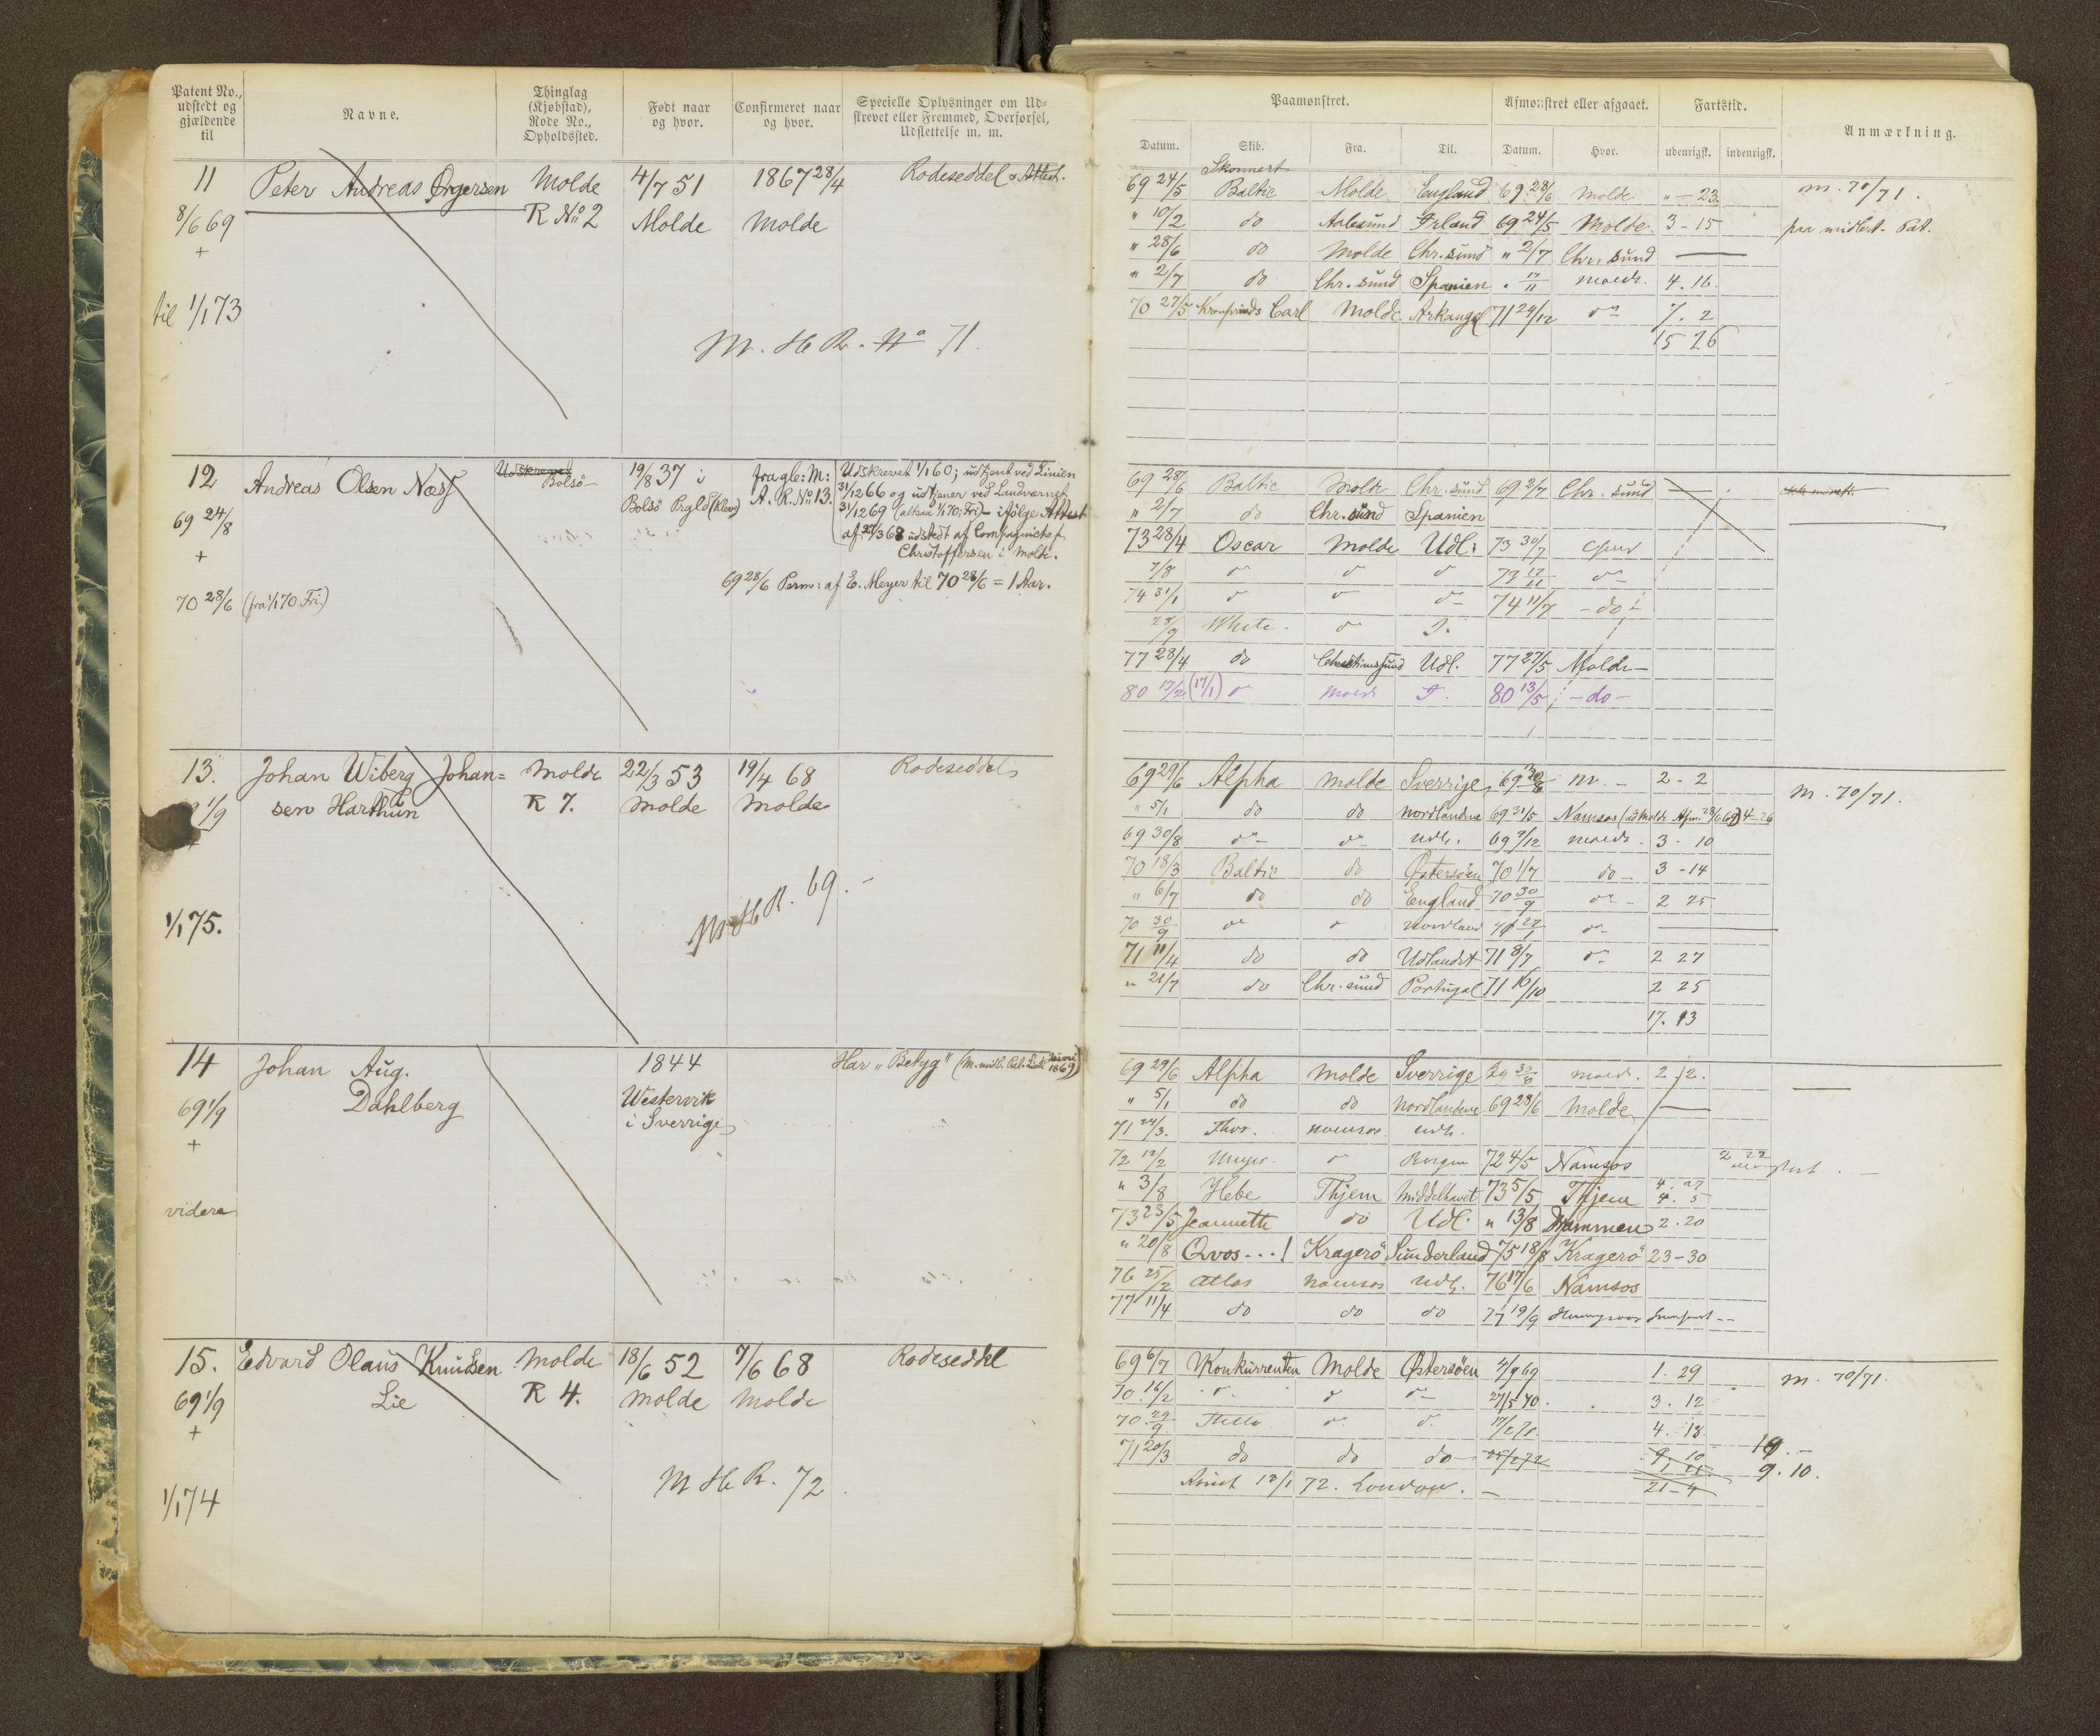 Patent No., udstedt og gjældende til
Navne.
Thinglag (Kjøbstad), Rode No., Opholdssted.
Født naar og hvor.
Confirmeret naar og hvor.
Specielle Oplysninger om Udskrevet eller Fremmed, Overførsel, Udslettelse m. m.
11 Peter Andreas Molde 4/7 51 1867 28/4 Rodeseddel & Attest.
8/6 69 R No 2 Molde Molde
+
til 1/1 73
M. H R. No 71.
12 Andreas Olsen Næss Udskrevet Bolsö 19/8 37 i fra gl: M: Udskrevet 1/1 60; udtjent ved Linien
69 24/8 Bolsö Prgld (Kleve) A. R. No 13. 31/12 66 og udtjener ved Landværnet
+ 31/12 69 (altsaa 1/1 70, Fri) – ifölge Attest
af 27/3 68 udstedt af Compagnichef
Christoffersen i Molde.
69 28/6 Perm: af E. Meyer til 70 28/6 = 1 Aar.
70 28/6 (fra 1/1 70 Fri)
13. Johan Wiberg Johan= Molde 22/3 53 19/4 68 Rodeseddel
1/9 sen Harthun R 7. Molde Molde
1/1 75.
M H R. 69.
14 Johan Aug. 1844 Har „Betyg" (M. midl. Pat. Liste Juni 1869)
69 1/9 Dahlberg Westervik
+ i Sverrige
videre
15. Edvard Olaus Knudsen Molde 18/6 52 7/6 68 Rodeseddel
69 1/9 Lie R 4. Molde Molde
+
1/1 74
M H R. 72
Paamønstret.
Afmønstret eller afgaaet.
Fartstid.
Anmærkning.
Datum. Skib. Fra. Til. Datum. Hvor. udenrigsk. indenrigsk.
Skonnert
69 24/5 Baltic Molde England 69 28/6 Molde " – 23. M. 70/71.
" 10/2 do Aalesund Irland 69 24/5 Molde 3 - 15 paa midlert. Pat.
" 28/6 do Molde Chr. sund " 2/7 Chr. sund —
" 2/7 do Chr. sund Spanien " 17/11 Molde. 4. 16.
70 27/5 Carl Molde Arkangel 71 24/12 do 7. 2
15 26
69 28/6 Baltic Molde Chr. sund 69 2/7 Chr. sund —
" 2/7 do Chr. sund Spanien
73 28/4 Oscar Molde Udl. 73 30/7
7/8 do do do 73 17/11 do
74 31/1 do do do 74 11/7 – do –
28/9 White do
77 28/4 do Christianssund Udl. 77 27/5 Molde –
80 17/2 (17/1) do Molde 80 13/5 – do –
69 29/6 Alpha Molde Sverrige 69 30/8 M. – 2 - 2 M. 70/71.
" 5/1 do do Nordlandene 69 31/5 Namsos (ad Molde Afm. 28/6 69) 4 - 26
69 30/8 do do Udl. 69 9/12 Molde. 3 - 10
70 18/3 Baltic do Østersöen 70 1/7 do – 3 - 14
" 6/7 do do England 70 30/9 do – 2 25
70 30/9 do do Nordland 71 27/1 do —
71 11/4 do do Udlandet 71 8/7 do 2 27
" 21/7 do Chr. sund Portugal 71 16/10 2 25
17. 13
69 29/6 Alpha Molde Sverrige 69 30/8 Molde. 2 2.
" 5/1 do do Nordlandene 69 28/6 Molde —
71 24/3. Thor. Namsos Udl.
72 12/2 do Bergen 72 4/5 Namsos 2 22
" 3/8 Hebe Thjem Middelhavet 73 5/5 Thjem 4. 27 4. 5
73 23/5 Jeannette do Udl. " 13/8 Drammen 2. 20
" 20/8 Qvos...! Kragerö Sunderland 75 18/8 Kragerö 23 – 30
76 25/2 Atlas Namsos Udl. 76 17/6 Namsos
77 11/4 do do do 77 19/9
69 6/7 Konkurrenten Molde Østersöen 4/9 69 1. 29 M. 70/71.
70. 16/2 do do do 27/5 70. 3. 12
70. 29/9 do do 17/2 71 4. 18
71 20/3 do do do 9. 10 19. –
13/1 72. London. – 21 – 4 9. 10.